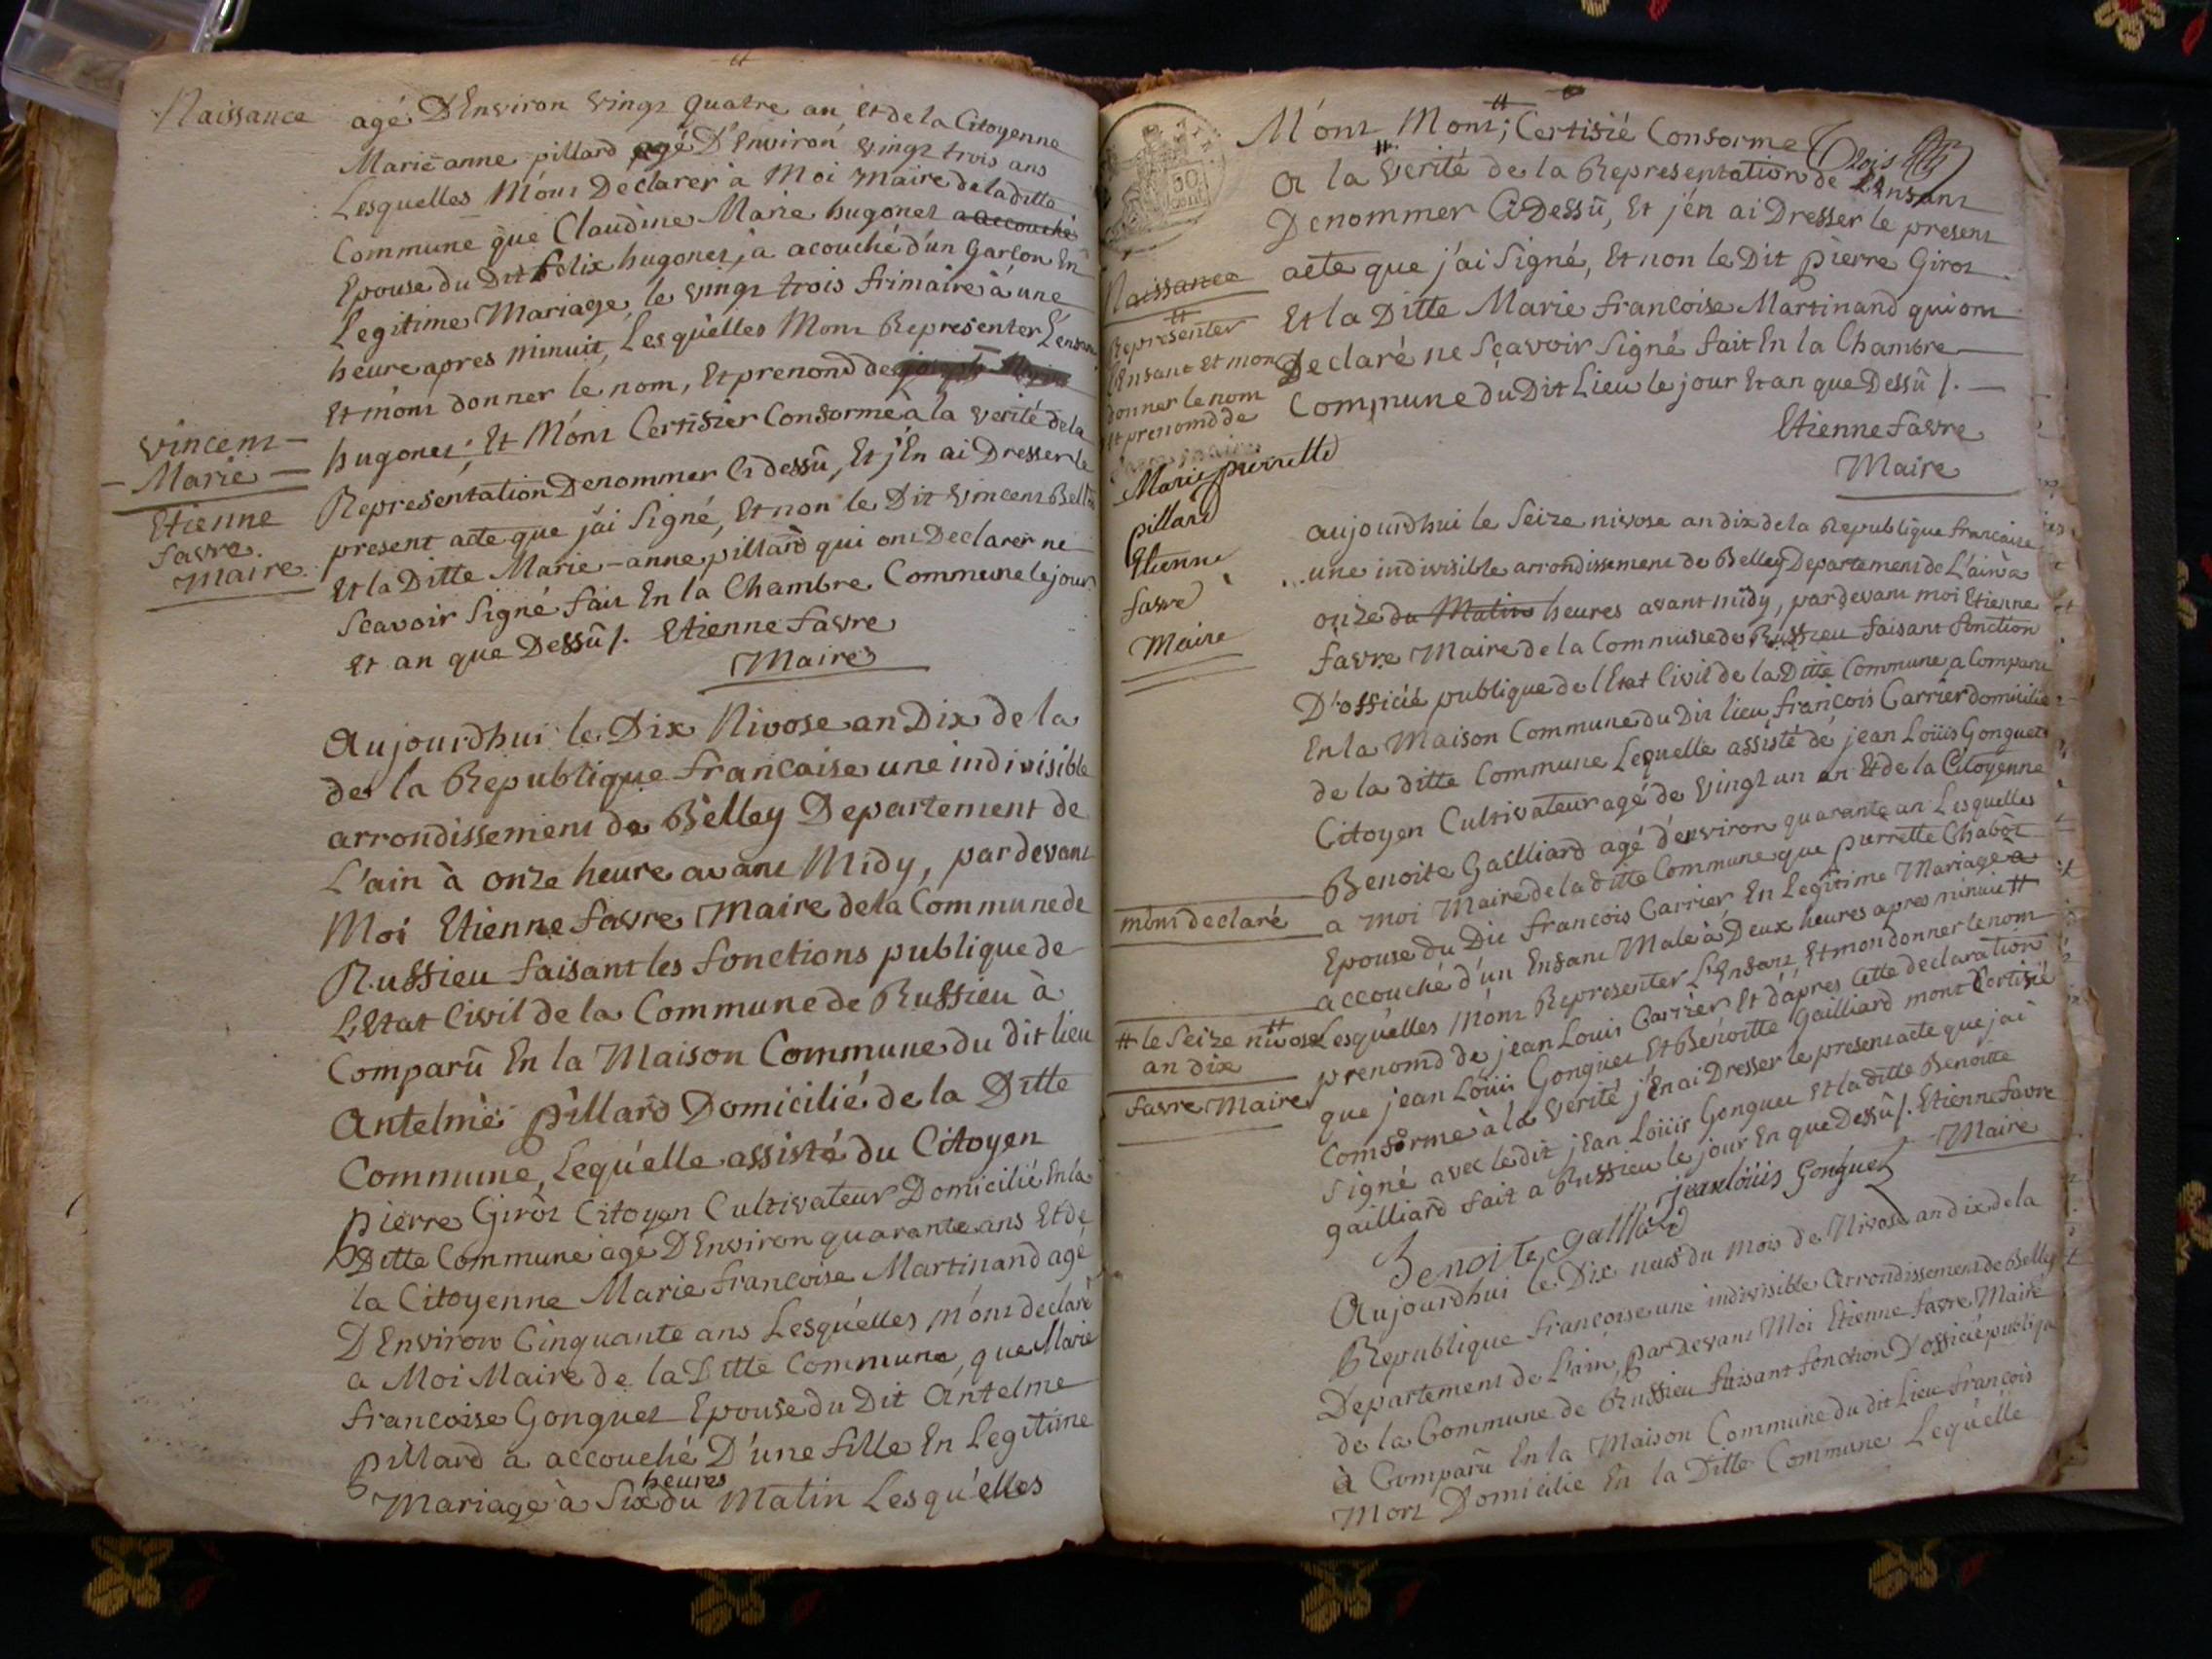 Naissance
agé D'Environ vingt quatre an, Et de la Citoyenne
Marie anne pillard agé D'Environ vingt trois ans
Lesquelles M'ont Declarer à Moi Maire de la ditte
Commune que Claudine Marie hugonet a accouché
Epouse du Dit felix hugonet, a acouché d'un Garcon En
Legitime Mariage, le vingt trois frimaire à une
heure apres minuit, Lesquelles Mont Representer L'enfant
Et m'ont donner le nom, Et prenond de
hugonet; Et M'ont Certifier Conforme à la verité de la
Representation Denommer Ci dessû, Et j'En ai Dresser le
present acte que j'ai Signé, Et non le Dit vincent
Et la Ditte Marie-anne pillard qui ont Declarer ne
Scavoir Signé fait En la Chambre Commune le jour
Et an que Dessû /. Etienne favre
Maire
vincent
Marie
Etienne
favre
Maire
Aujourdhui le Dix Nivose an Dix de la
de la Republique francaise une indivisible
arrondissement de Belley Departement de
L'ain à onze heure avant Midy, pardevant
Moi Etienne favre Maire de la Commune de
Russieu faisant les fonctions publique de
L'Etat Civil de la Commune de Russieu à
Comparû En la Maison Commune du dit lieu
Antelme pillard Domicilié de la Ditte
Commune, Lequ'elle assisté du Citoyen
pierre Girot Citoyen Cultivateur Domicilié En la
Ditte Commune agé D'Environ quarante ans Et de
la Citoyenne Marie francoise Martinand agé
D'Environ Cinquante ans Lesqu'elles m'ont declaré
a Moi Maire de la Ditte Commune, que Marie
francoise Gonguet Epouse du Dit Antelme
pillard a accouché D'une fille En Legitime
heures
Mariage à Six du Matin Lesqu'elles
M'ont Mont; Certifié Conforme
a la verité de la Representation de L'Enfant
Denommer Ci Dessû, Et j'en ai Dresser le present
acte que j'ai Signé, Et non le Dit pierre Girot
Et la Ditte Marie francoise Martinand qui ont
Declaré ne Sçavoir Signé fait En la Chambre
Commune du Dit Lieu le jour Et an que Dessû /.
Etienne favre
Maire
Naissance
Representer
L'Enfant Et mon
donner le nom
Et prenomd de
Marie pierrette
pillard
Etienne
favre
Maire
aujourdhui le Seize nivose an dix de la Republique francaise
une indivisible arrondissement de Belley Departement de L'ain a
onze du Matin heures avant midy, pardevant moi Etienne
favre Maire de la Commune de Russieu faisant fonction
D'officié publique de l'Etat Civil de la Ditte Commune a Comparu
En la Maison Commune du Dit lieu françois Carrier domicilié
de la ditte Commune Lequelle assisté de jean Loüis Gonguet
Citoyen Cultivateur agé de vingt un an Et de la Citoyenne
Benoite Gailliard agé d'environ quarante an Lesquelles
a moi Maire de la ditte Commune que pierrette Chabot
Epouse du Dit francois Carrier En Legitime Mariage a
accouché d'un Enfant Male à Deux heures apres minuit #
Lesquelles Mont Representer L'Enfant Et mon donner le nom
prenomd de jean Louis Carrier Et d'apres Cette declaration
que jean Loüis Gonguet Et Benoitte Gailliard mont Certifié
Comforme à la verité j'En ai Dresser le present acte que j'ai
Signé avec le dit jean Loüis Gonguet Et la ditte Benoitte
gailliard fait a Russieu le jour En que Dessû /. Etienne favre
Maire
jean loüis Gonguet
Benoite gailliard
mont declaré
# le Seize nivose
an dix
favre Maire
Aujourdhui le Dix neuf du mois de Nivose an dix de la
Republique francoise une indivisible Arrondissement de Belley
Departement de L'ain, par Devant Moi Etienne favre Maire
de la Commune de Russieu faisant fonction D'officié publique
à Comparû En la Maison Commune du dit Lieu françois
Mort Domicilié En la Ditte Commune Lequ'elle